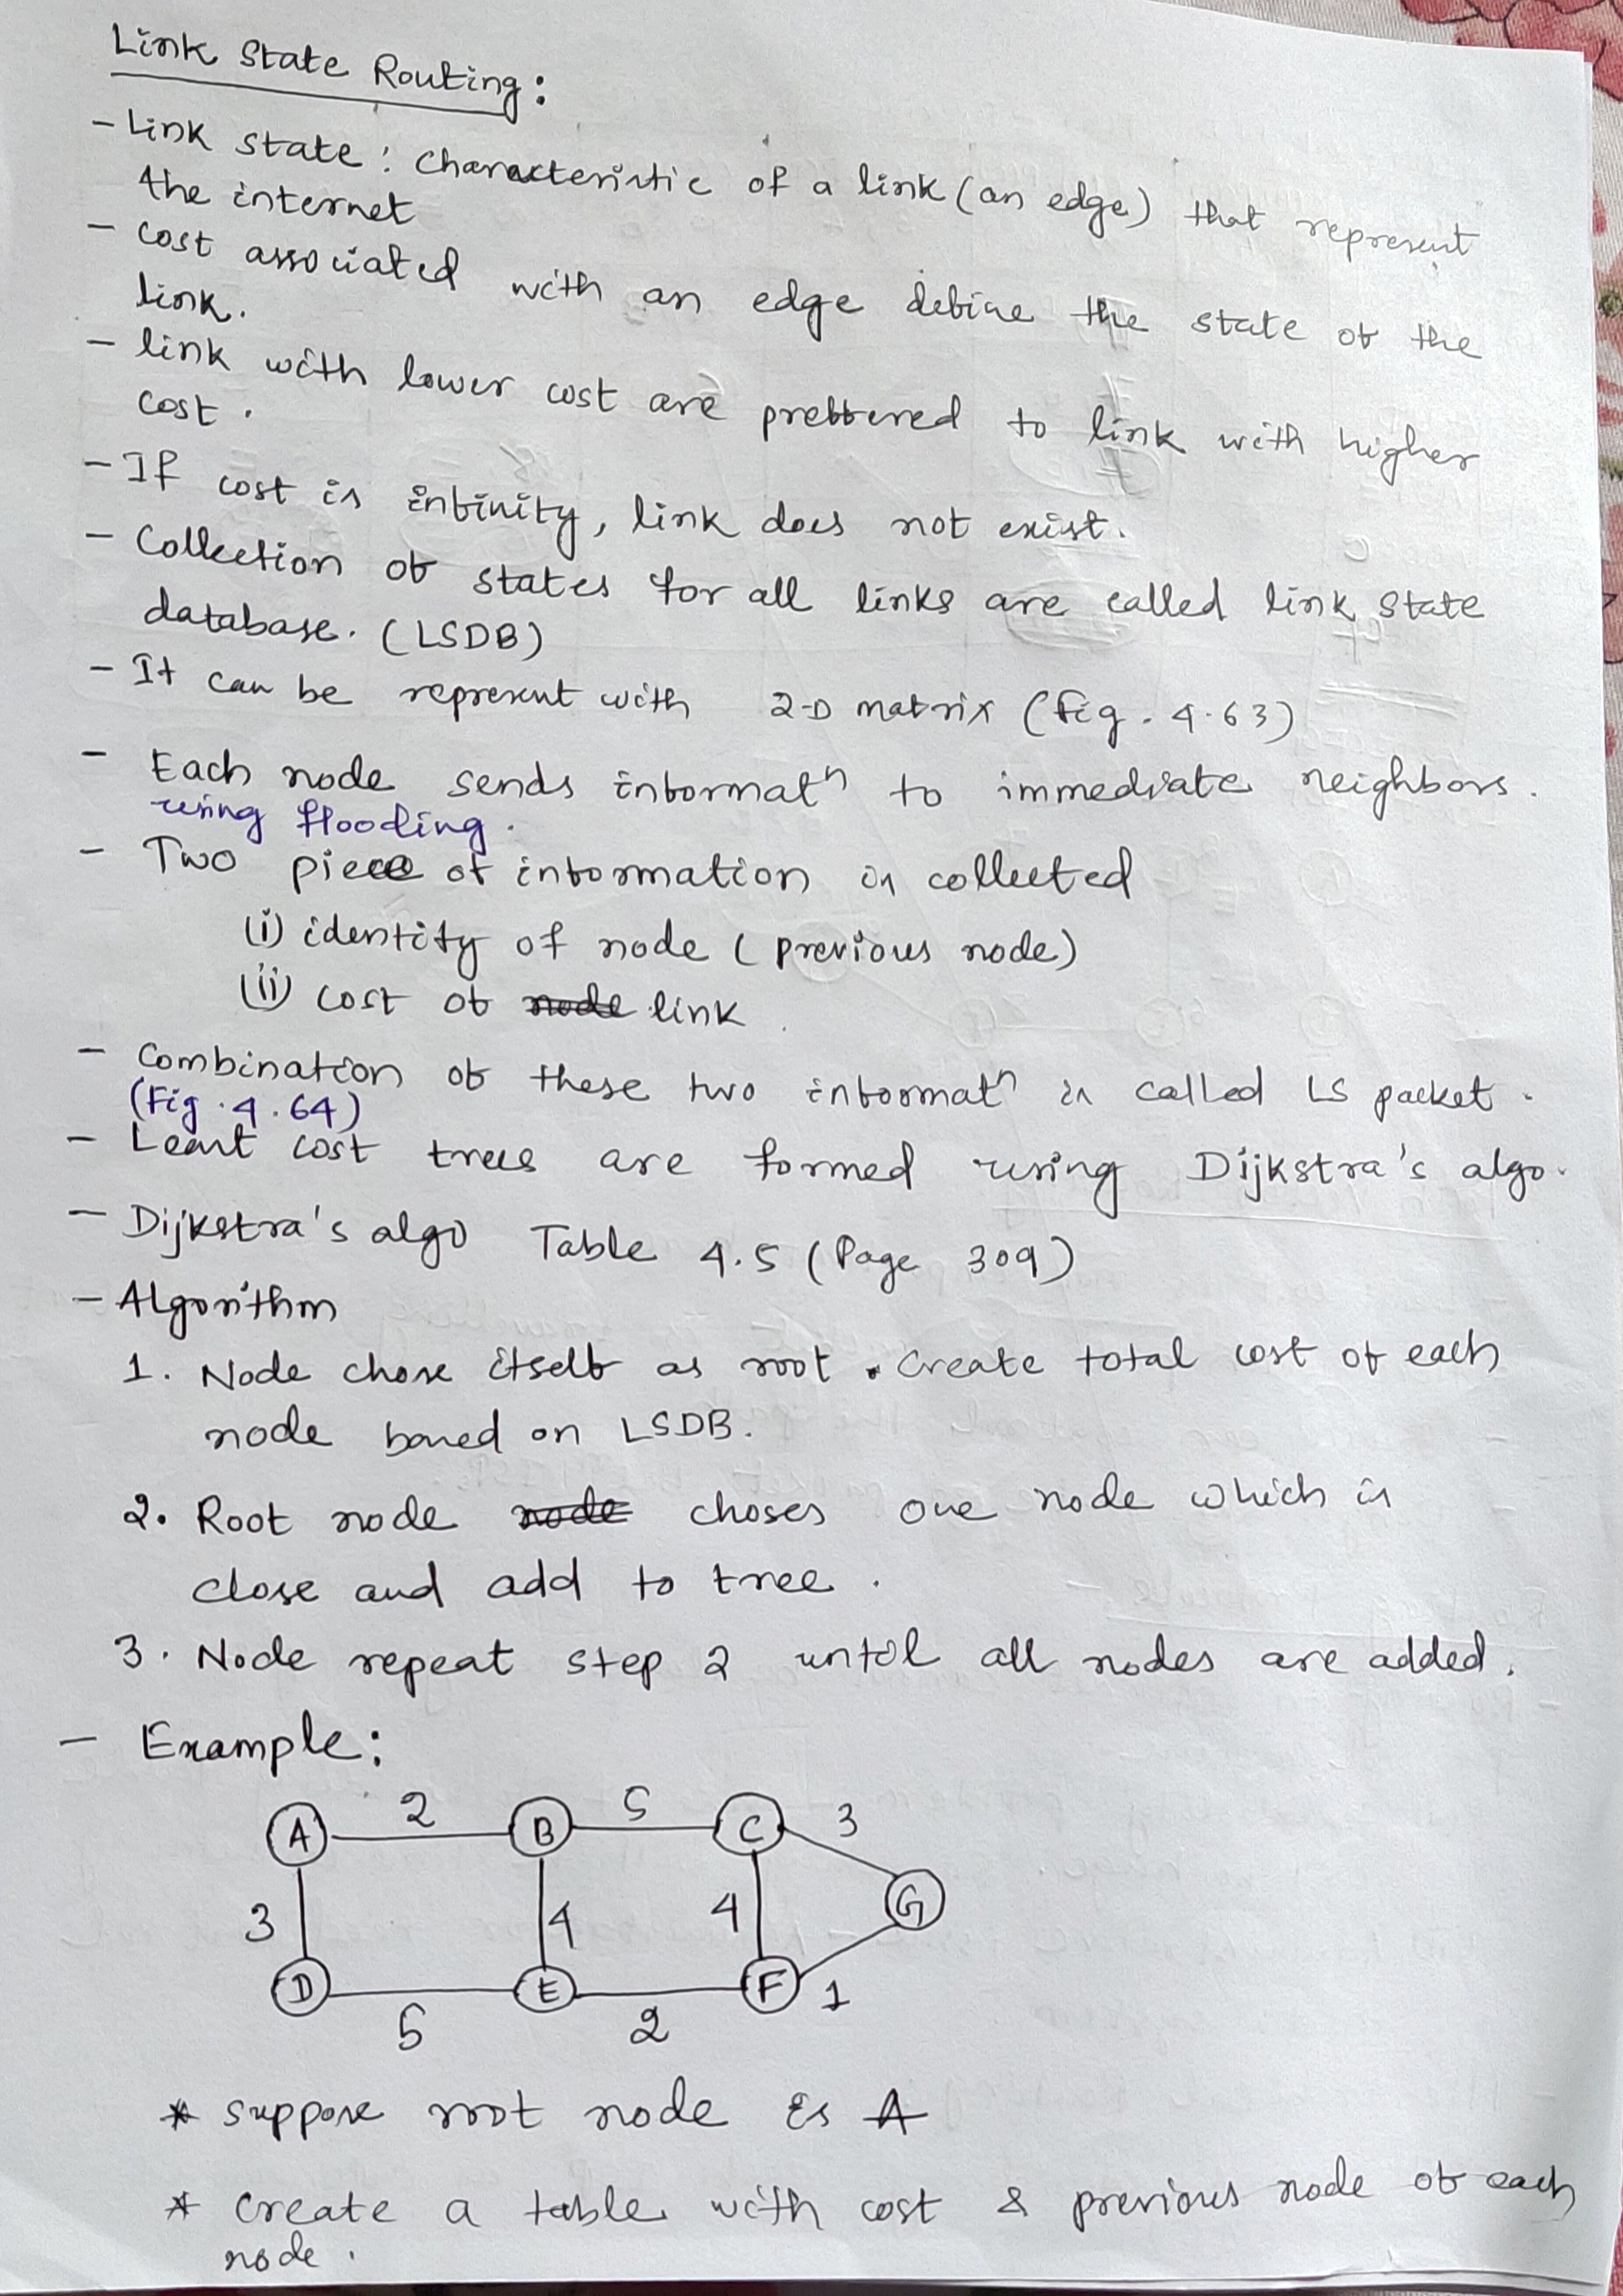 Link State Routing:
- Link state: Characteristic of a link (an edge) that represent
the internet
- cost associated with an edge define the state of the
link.
- link with lower cost are preffered to link with higher
cost.
- If cost is infinity, link does not exist.
- Collection of states for all links are called link state
database. (LSDB)
- It can be represent with 2-D matrix (fig. 4.63)
- Each node sends informatn to immediate neighbors.
using flooding.
- Two piece of information is collected
(i) identity of node (previous node)
(ii) cost of node link
- Combination of these two informatn is called LS packet.
(Fig. 4.64)
- Least cost trees are formed using Dijkstra's algo.
- Dijkstra's algo Table 4.5 (Page 309)
- Algorithm
1. Node chose itself as root. Create total cost of each
node based on LSDB.
2. Root node node choses one node which is
close and add to tree.
3. Node repeat step 2 until all nodes are added.
- Example:
A 2 B 5 C 3
3 4 4 G
D E F 1
5 2
* suppose root node is A
* create a table with cost & previous node of each
node.